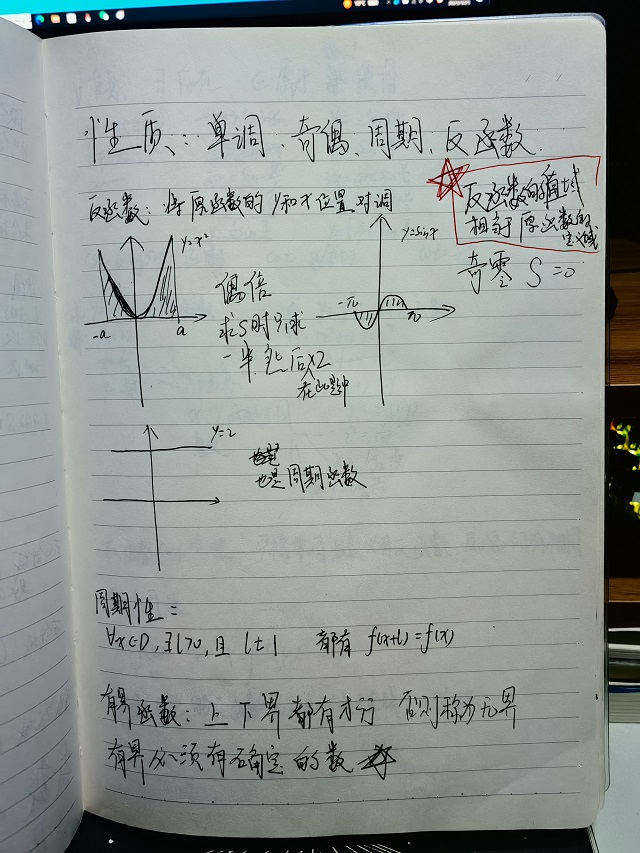 性质:单调、奇偶、周期、反函数.
反函数:将原函数的y和x位置对调
反函数的值域
相当于原函数的
定义域
y=x²
-a
a
偶倍
求S时只求
一半然后×2
在此题中
y=sinx
-π
π
奇零 S=0
y=2
也是周期函数
周期性:
∀x∈D,∃l>0,且 l±1 都有 f(x+l)=f(x)
有界函数:上下界都有才行 否则称为无界
有界必须有确定的数